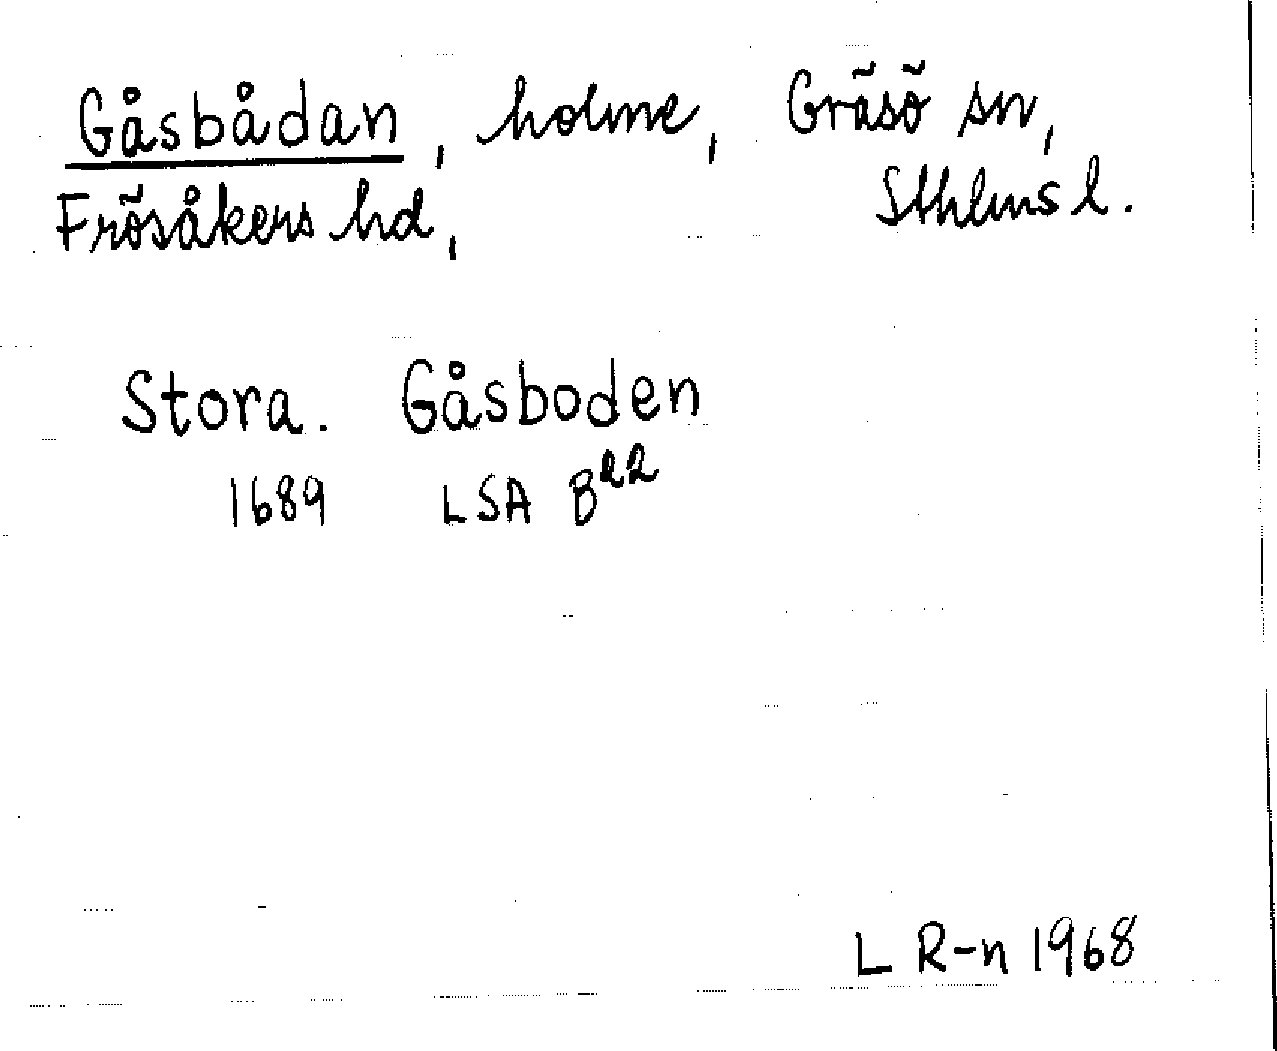 Gåsbådan, holme, Gräsö sn,
Frösåkers hd, Sthlms l.
Stora. Gåsboden
1689 LSA B22
L R-n 1968